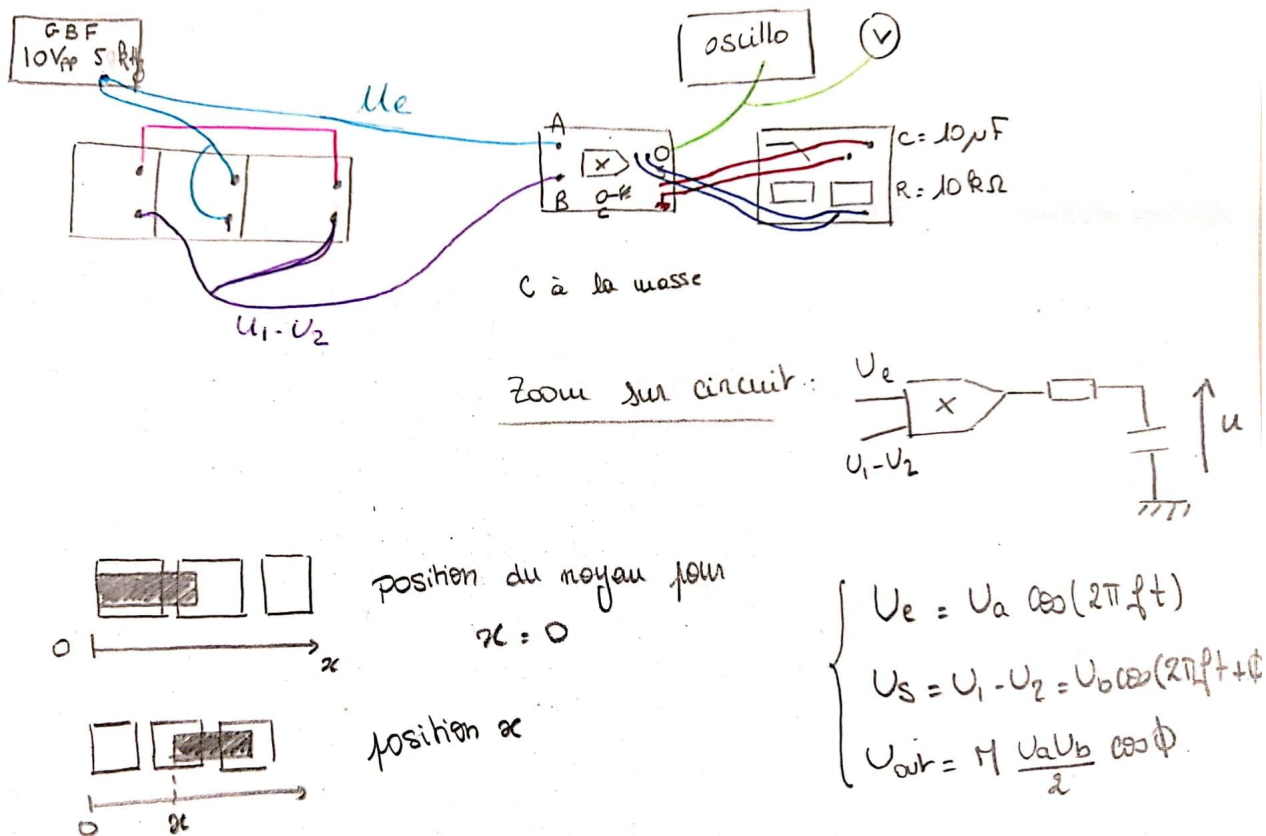 GBF
10Vpp 5 kHz
Ue
U₁-U₂
A
B
X
C
O
oscillo
V
C = 10µF
R = 10kΩ
C à la masse
Zoom sur circuit :
Ue
X
U₁-U₂
u
position du noyau pour
x = 0
0
x
position x
0
x
Ue = Ua cos(2πft)
Us = U₁-U₂ = Ub cos(2πft+ϕ
Uout = M UaUb/2 cosϕ